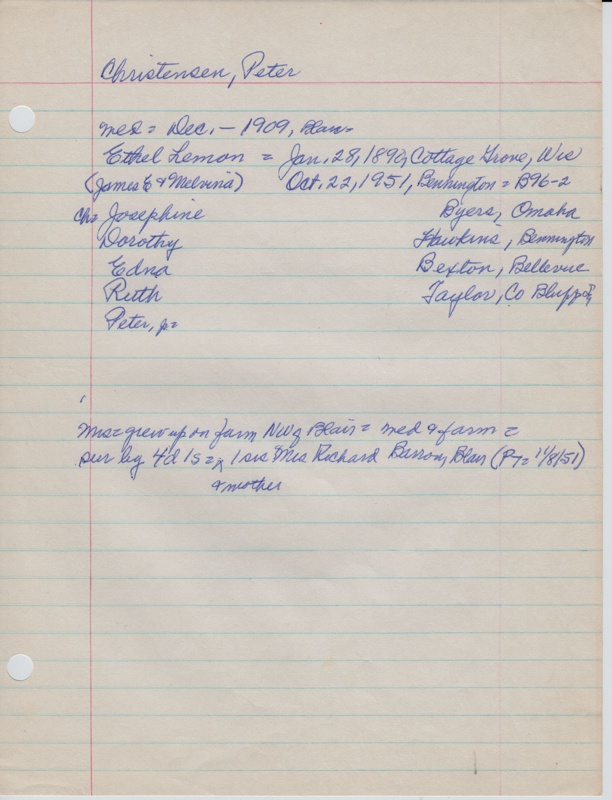 Christensen, Peter
med = Dec. – 1909, Blair
Ethel Lemon = Jan. 28, 1890, Cottage Grove, Wis
(James E & Melvina) Oct. 22, 1951, Bennington = B96-2
Chs Josephine Byers, Omaha
Dorothy Hawkins, Bennington
Edna Bexton, Bellevue
Ruth Taylor, Co Bluffs
Peter, Jr
Mrs = grew up on farm NW of Blair = med & farm =
sur by 4d 1s = 1 sis Mrs Richard Barron, Blair (PT = 11/8/51)
& mother